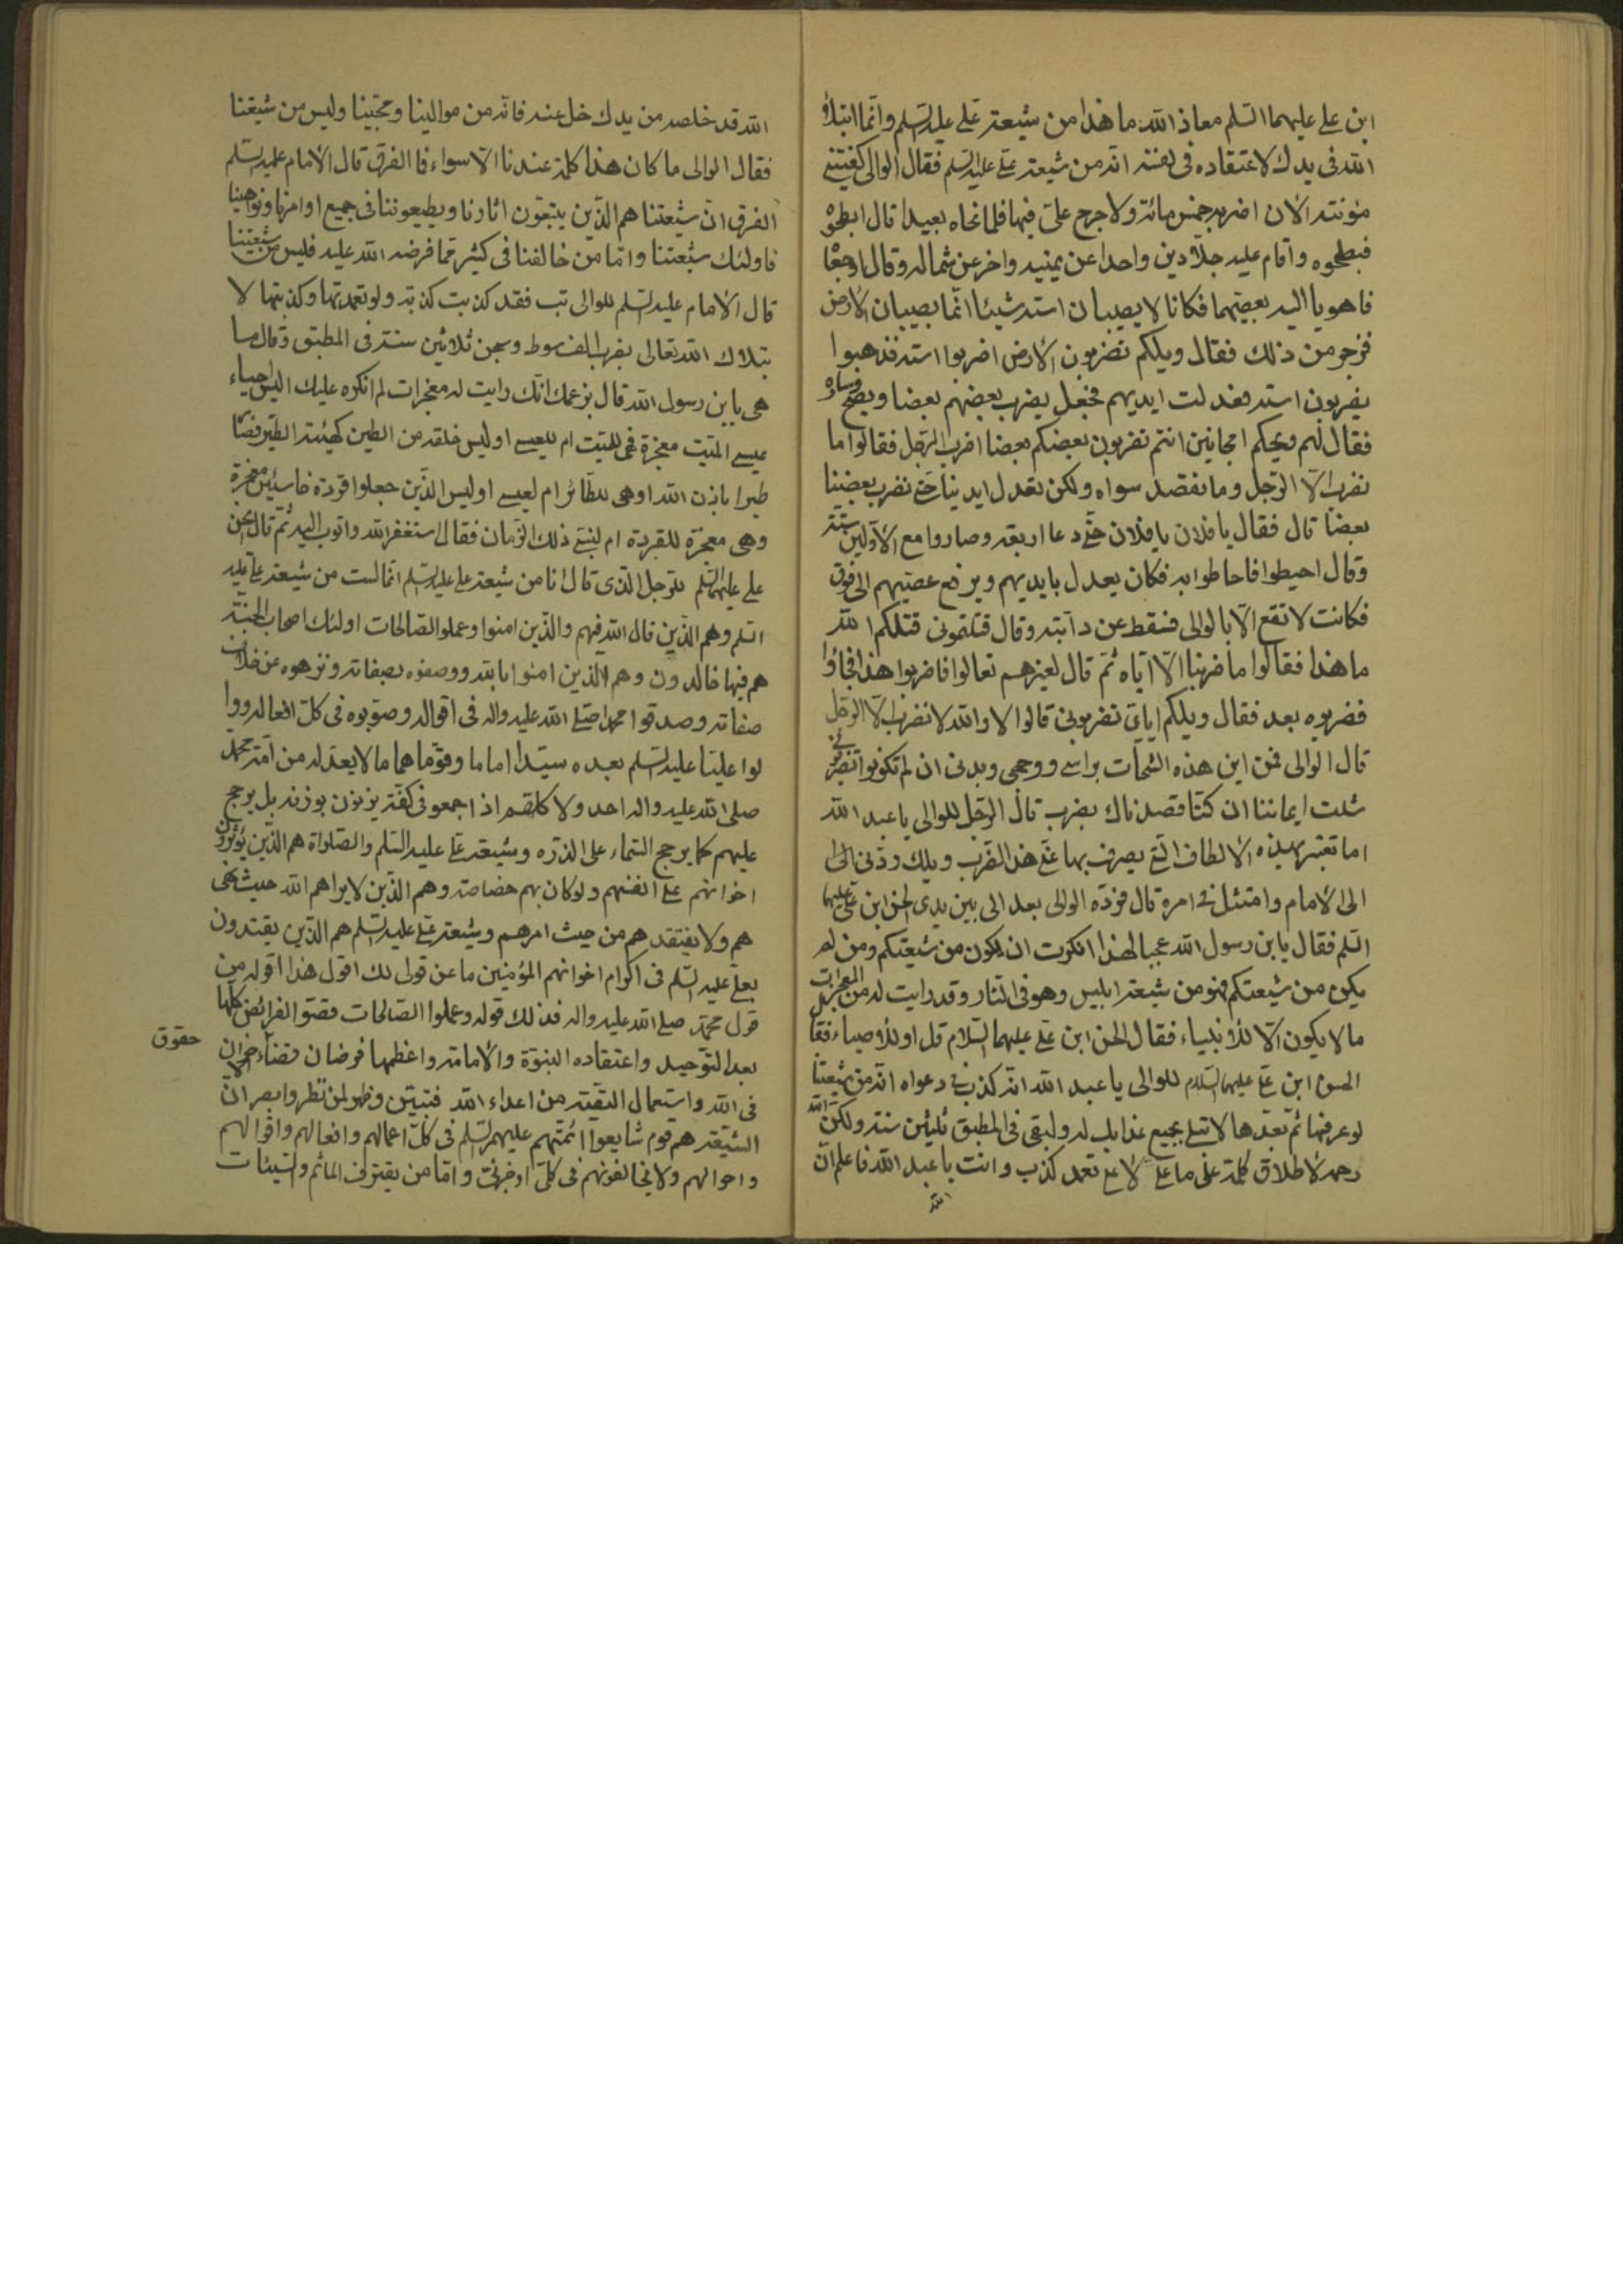 ابن علي عليهما السلم معاذ الله ما هذا من شيعة علي عليه السلم وانّما ابتلاه
الله في يدك لاعتقاده في نفسه انّه من شيعة علي عليه السلم فقال الوالي كفيتني
مؤنته الان اضربه خمس مائة ولا حرج عليّ فيها فلما نحاه بعيدا قال ابطحوه
فبطحوه واقام عليه جلّادين واحدا عن يمينه واخر عن شماله وقال اوجعا
فاهويا اليه بعصيهما فكانا لا يصيبان استه شيئا انّما يصيبان الارض
فزجر من ذلك فقال ويلكم تضربون الارض اضربوا استه فذهبوا
يضربون استه فعدلت ايديهم فجعل يضرب بعضهم بعضا ويصيح
فقال لهم ويحكم امجانين انتم تضربون بعضكم بعضا اضرب الرّجل فقالوا ما
نضرب الّا الرّجل وما نقصد سواه ولكن تعدل ايدينا حتّى نضرب بعضنا
بعضا قال فقال يا فلان يا فلان حتّى دعا اربعة وصاروا مع الاوّلين ستّة
وقال احيطوا فاحاطوا به فكان يعدل بايديهم ويرفع عصيّهم الى فوق
فكانت لا تقع الّا بالوالي فسقط عن دابّته وقال قتلتموني قتلكم الله
ما هذا فقالوا ما ضربنا الّا ايّاه ثمّ قال لغيرهم تعالوا فاضربوا هذا فجاؤا
فضربوه بعد فقال ويلكم ايّاي تضربون قالوا لا والله لا نضرب الّا الرّجل
قال الوالي فمن اين هذه الشجّات براسي ووجهي وبدني ان لم تكونوا تضربوني
شلت ايماننا ان كنّا قصدناك بضرب قال الرّجل للوالي يا عبد الله
اما تعتبر بهذه الالطاف التي يصرف بها عنّي هذا الضّرب ويلك ردّني
الى الامام وامتثل في امره قال فردّه الوالي بعد الى بين يدي الحسن ابن عليّ عليهما
السلم فقال يابن رسول الله عجبا لهذا انكرت ان يكون من شيعتكم ومن لم
يكن من شيعتكم فهو من شيعة ابليس وهو في النّار وقد رايت له من المعجزات
ما لا يكون الّا للانبياء فقال الحسن ابن علي عليهما السّلام قل او للاوصياء فقا
الحسن ابن علي عليهما السّلام للوالي يا عبد الله انّه كذب في دعواه انّه من شيعتنا
لو عرفها ثمّ تعمّدها لابتلي بجميع عذابك له ولبقي في المطبق ثلثين سنة ولكنّ الله
رحمه لاطلاق كلمة على ما عنى لا على تعمد كذب وانت يا عبد الله فاعلم انّ
الله
الله قد خلصه من يدك خلّ عنه فانّه من موالينا ومحبّينا وليس من شيعتنا
فقال الوالي ما كان هذا كلّه عندنا الّا سواء فما الفرق قال الامام عليه السلم
الفرق انّ شيعتنا هم الّذين يتّبعون اثارنا ويطيعوننا في جميع اوامرنا ونواهينا
فاولئك شيعتنا وامّا من خالفنا في كثير ممّا فرضه الله عليه فليس من شيعتنا
قال الامام عليه السلم للوالي تب فقد كذبت كذبة ولو تعمدتها وكذبتها لا
بتلاك الله تعالى بضرب الف سوط وسجن ثلاثين سنة في المطبق وقال ما
هي يابن رسول الله قال بزعمك انّك رايت له معجزات لم انكره عليك اليس احياء
عيسى الميّت معجزة فهي للميّت ام لعيسى اوليس خلقه من الطين كهيئة الطير فصار
طيرا باذن الله اوهي للطائر ام لعيسى اوليس الّذين جعلوا قردة خاسئين معجزة
وهي معجزة للقردة ام لنبيّ ذلك الزّمان فقال استغفر الله واتوب اليه ثمّ قال الحسن
علي عليهما السّلم للرّجل الّذي قال انا من شيعة علي عليه السلم انّما لست من شيعة علي عليه
السلم وهم الّذين قال الله فيهم والّذين امنوا وعملوا الصّالحات اولئك اصحاب الجنّة
هم فيها خالدون وهم الّذين امنوا بالله ووصفوه بصفاته ونزهوه عن خلاف
صفاته وصدقوا محمدا صلى الله عليه واله في اقواله وصوّبوه في كلّ افعاله ووا
لوا عليّا عليه السّلم بعده سيّدا اماما وقوّما هماما لا يعدله من امّة محمد
صلى الله عليه واله احد ولا كلّهم اذ اجمعو في كفّة يزنون بوزنه بل يرجح
عليهم كما يرجح السّماء على الذرّه وشيعة علي عليه السّلم والصّلواة هم الّذين يؤثرون
اخوانهم على انفسهم ولو كان بهم خصاصة وهم الّذين لا يراهم الله حيث نهى
هم ولا يفتقدهم من حيث امرهم وشيعة عليّ عليه السلم هم الّذين يقتدون
بعليّ عليه السلم في اكرام اخوانهم المؤمنين ما عن قولي لك اقول هذا اقوله من
قول محمّد صلى الله عليه واله فذلك قوله وعملوا الصّالحات قضوا الفرائض كلّها
بعد التّوحيد واعتقاده النبوّة والامامة واعظمها فرضان قضاء
حقوق
الاخوان
في الله واستعمال التقيّة من اعداء الله فتبيّن وظهر لمن نظر وابصر انّ
الشيعة هم قوم شايعوا ائمّتهم عليهم السلم في كلّ اعمالهم وافعالهم واقوالهم
واحوالهم ولا يخالفونهم في كلّ وامّا من يقترف الماثم والسّيئات